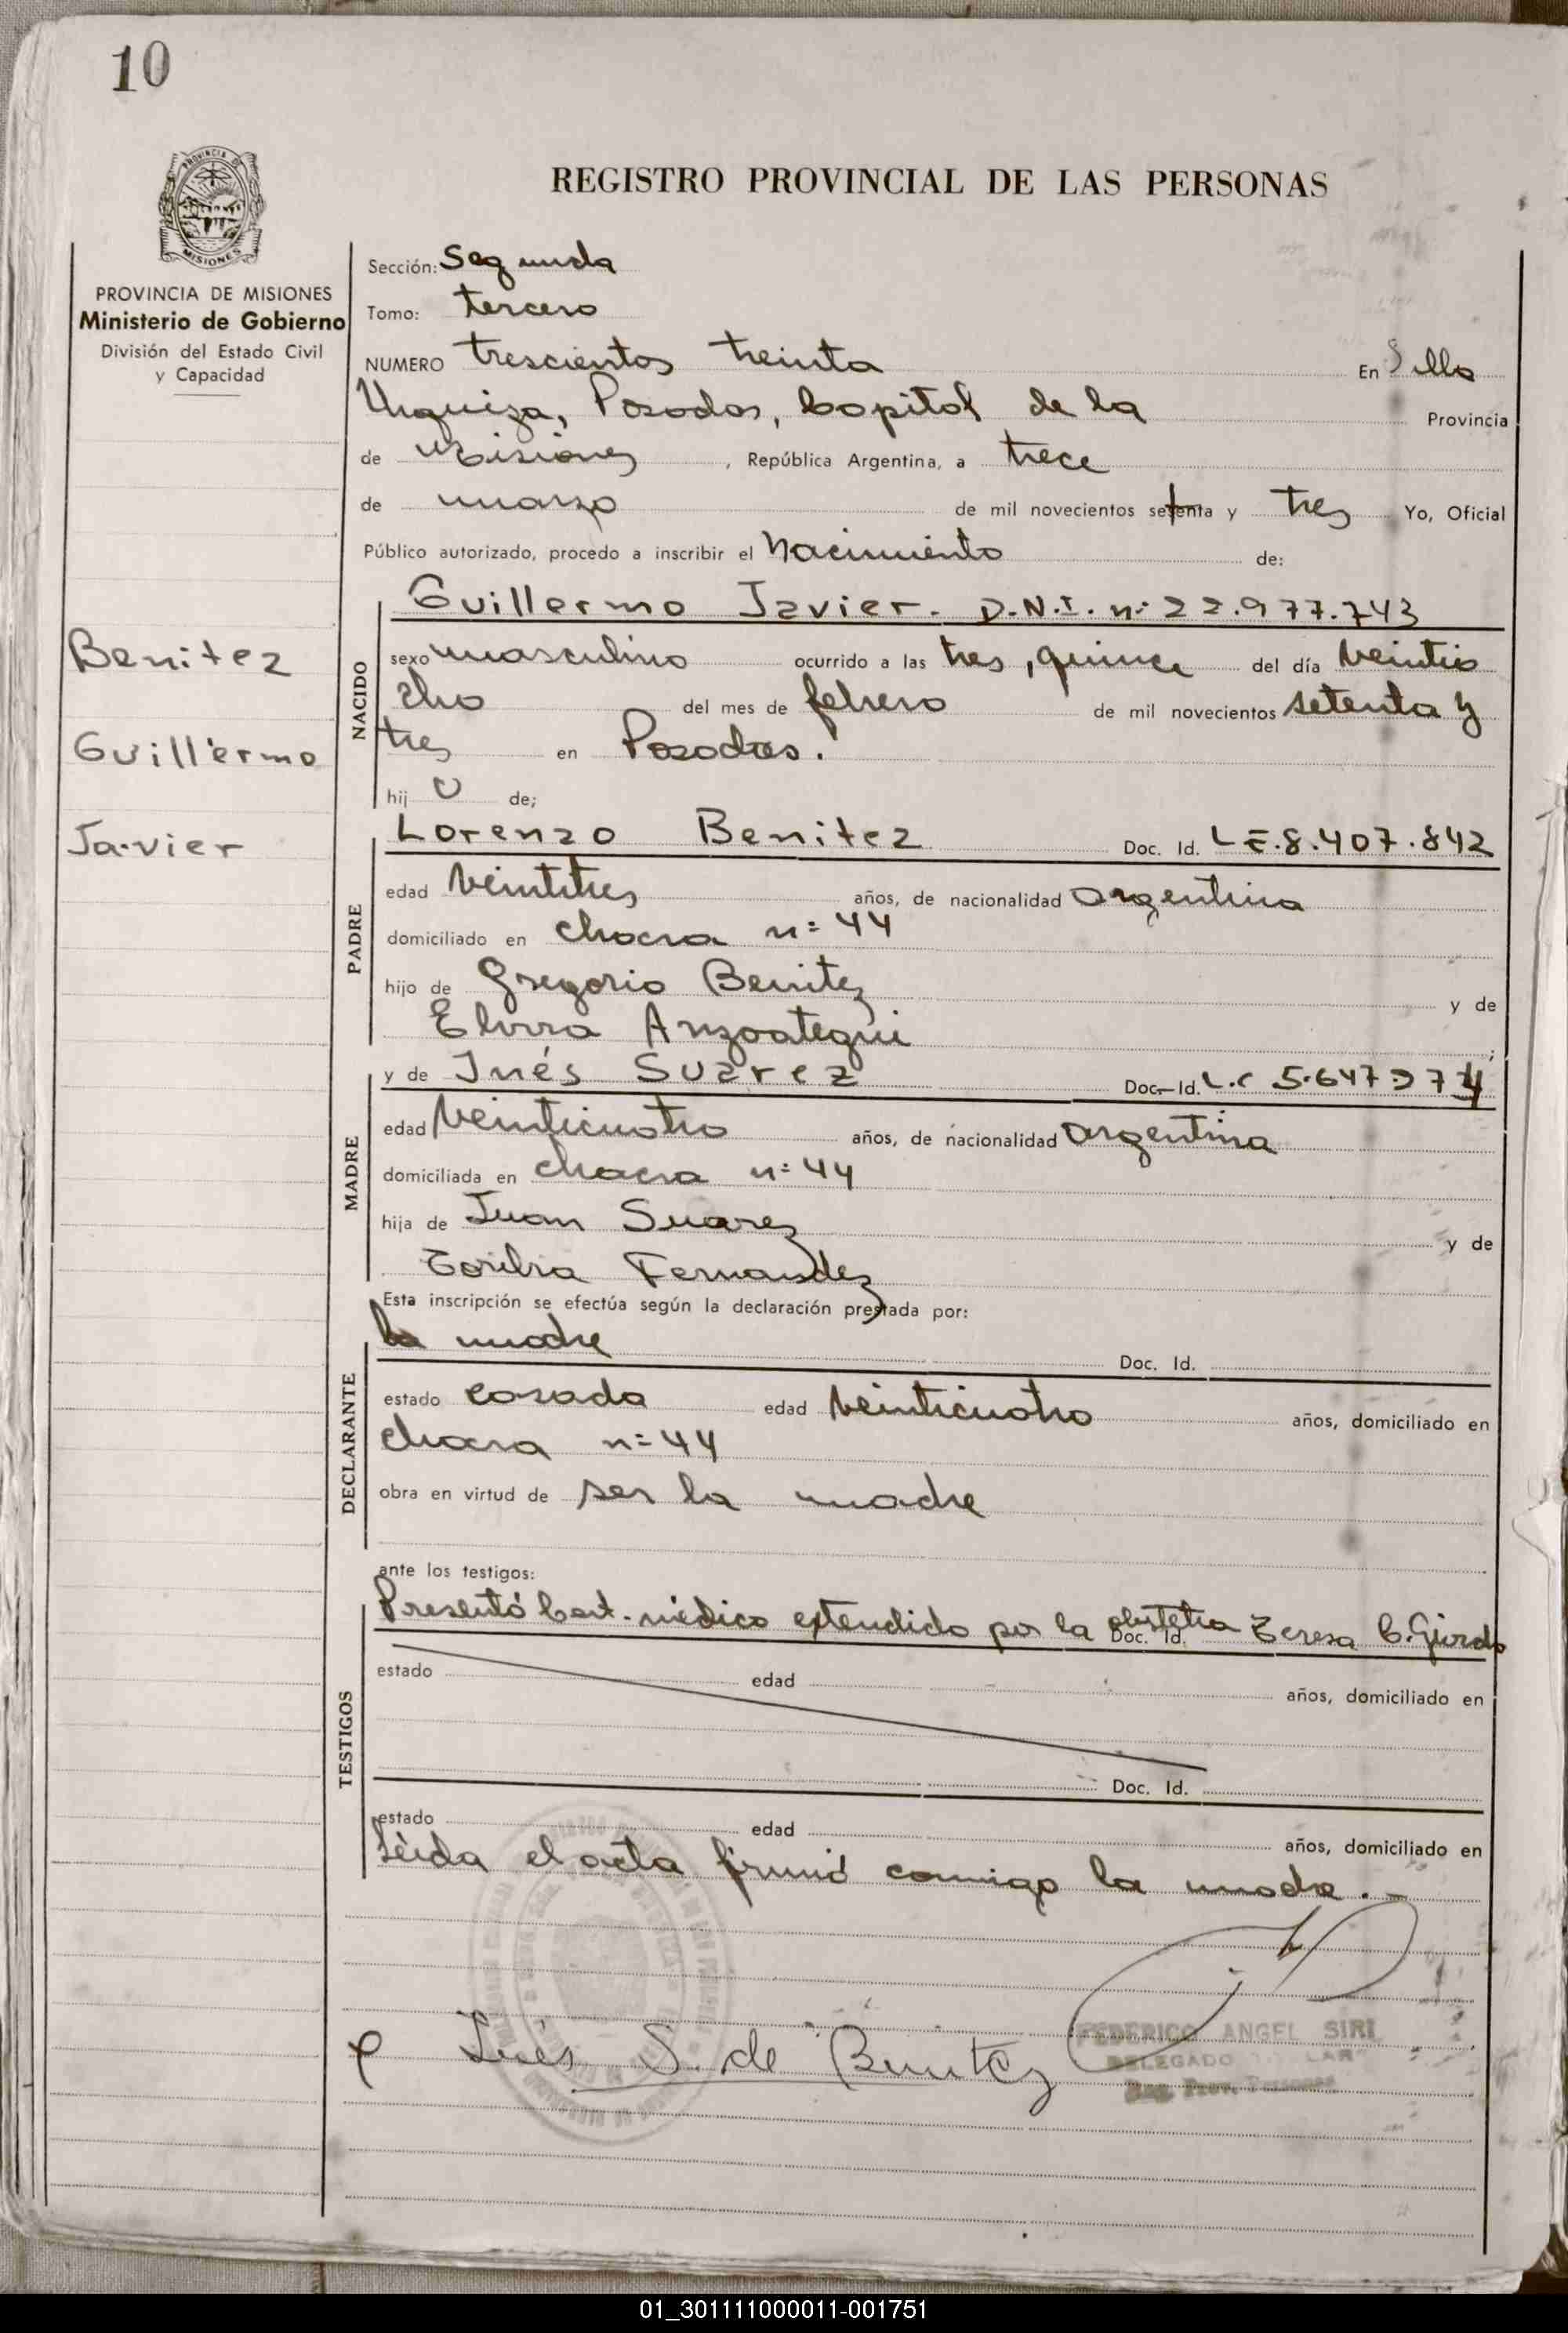 10
REGISTRO PROVINCIAL DE LAS PERSONAS
PROVINCIA DE MISIONES
Ministerio de Gobierno
División del Estado Civil
y Capacidad
Sección: Segunda
Tomo: tercero
NUMERO trescientos treinta En Villa
Urquiza, Posadas, Capital de la Provincia
de Misiones, República Argentina, a trece
de marzo de mil novecientos setenta y tres Yo, Oficial
Público autorizado, procedo a inscribir el Nacimiento de:
Guillermo Javier. D.N.I. n: 22.977.743
Benitez
Guillermo
Javier
NACIDO
sexo masculino ocurrido a las tres, quince del día veintio
cho del mes de febrero de mil novecientos setenta y
tres en Posadas.
hij o de;
PADRE
Lorenzo Benitez Doc. Id. L E.8.407.842
edad veintitres años, de nacionalidad argentina
domiciliado en chacra n: 44
hijo de Gregorio Benitez y de
Elvira Anzoategui ;
MADRE
y de Inés Suarez Doc. Id. L.C 5.647.974
edad veinticuatro años, de nacionalidad argentina
domiciliada en chacra n: 44
hija de Juan Suarez y de
Toribia Fernandez
Esta inscripción se efectúa según la declaración prestada por:
DECLARANTE
la madre Doc. Id.
estado casada edad veinticuatro años, domiciliado en
chacra n: 44
obra en virtud de ser la madre
ante los testigos:
TESTIGOS
Presentó Cert. médico extendido por la obstetra Doc. Id. Teresa C.
estado edad años, domiciliado en
Doc. Id.
estado edad años, domiciliado en
Leida el acta firmó conmigo la madre.-
Inés S. de Benitez
FEDERICO ANGEL SIRI
DELEGADO
01_301111000011-001751